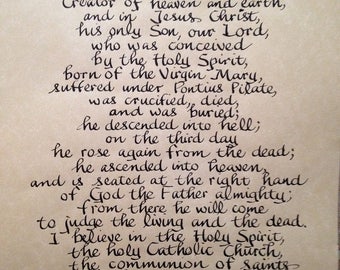 Creator of heaven and earth,
and in Jesus Christ,
his only Son, our Lord,
who was conceived
by the Holy Spirit,
born of the Virgin Mary,
suffered under Pontius Pilate,
was crucified, died,
and was buried;
he descended into hell;
on the third day
he rose again from the dead;
he ascended into heaven,
and is seated at the right hand
of God the Father almighty;
from there he will come
to judge the living and the dead.
I believe in the Holy Spirit,
the holy Catholic Church,
the communion of saints